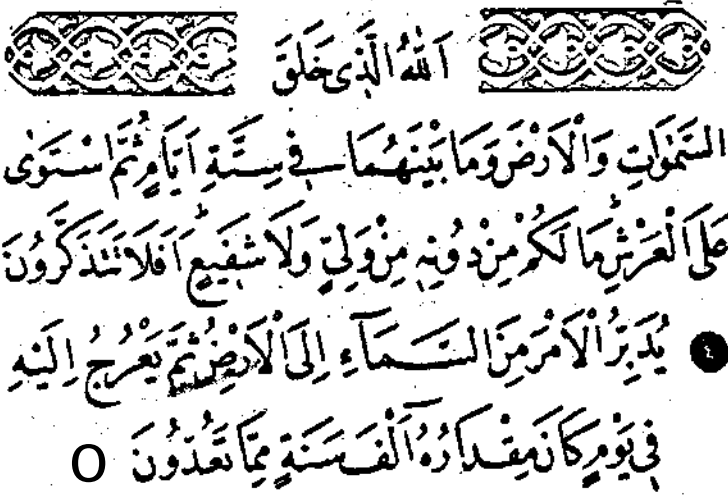 اَللّٰهُ الَّذٖى خَلَقَ
السَّمٰوَاتِ وَالْاَرْضَ وَمَا بَيْنَهُمَا فٖى سِتَّةِ اَيَّامٍ ثُمَّ اسْتَوٰى
عَلَى الْعَرْشِؕ مَا لَكُمْ مِنْ دُونِهٖ مِنْ وَلِىٍّ وَلَا شَفٖيعٍؕ اَفَلَا تَتَذَكَّرُونَ
٤ يُدَبِّرُ الْاَمْرَ مِنَ السَّمَٓاءِ اِلَى الْاَرْضِ ثُمَّ يَعْرُجُ اِلَيْهِ
فٖى يَوْمٍ كَانَ مِقْدَارُهُٓ اَلْفَ سَنَةٍ مِمَّا تَعُدُّونَ O